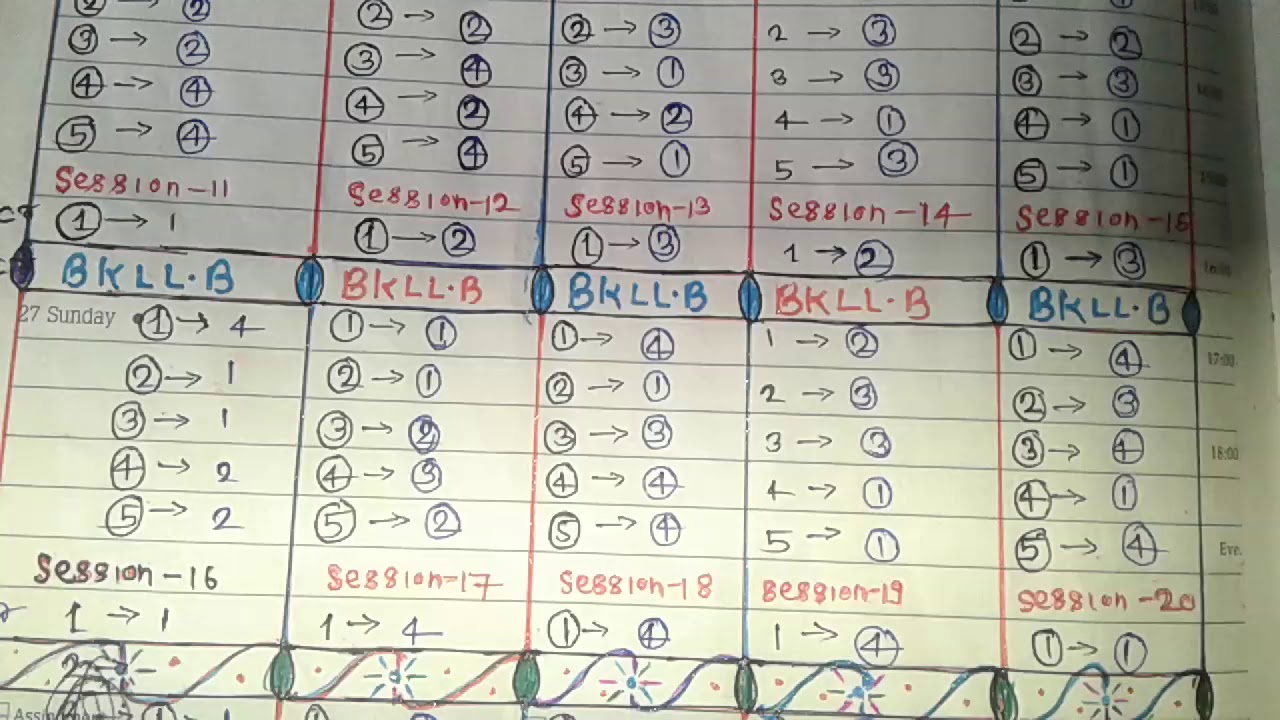 ② → ② ② → ② ② → ③ 2 → ③ ② → ②
③ → ② ③ → ④ ③ → ① 3 → ③ ③ → ③
④ → ④ ④ → ② ④ → ② 4 → ① ④ → ①
⑤ → ④ ⑤ → ④ ⑤ → ① 5 → ③ ⑤ → ①
Session-11 Session-12 Session-13 Session-14 Session-15
① → 1 ① → ② ① → ③ 1 → ② ① → ③
16:00
BKLL.B BKLL.B BKLL.B BKLL.B BKLL.B
27 Sunday ① → 4 ① → ① ① → ④ 1 → ② ① → ④ 17:00
② → 1 ② → ① ② → ① 2 → ③ ② → ③
③ → 1 ③ → ② ③ → ③ 3 → ③ ③ → ④ 18:00
④ → 2 ④ → ③ ④ → ④ 4 → ① ④ → ①
⑤ → 2 ⑤ → ② ⑤ → ④ 5 → ① ⑤ → ④ Eve.
Session-16 Session-17 Session-18 Session-19 Session-20
1 → 1 1 → 4 ① → ④ 1 → ④ ① → ①